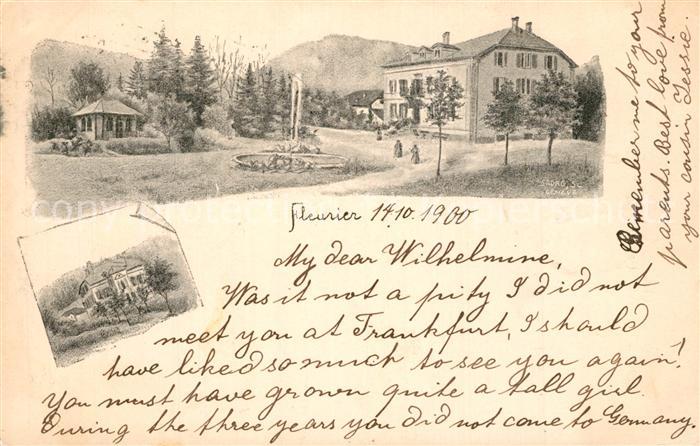 SADAG, S.
GENEVE
Fleurier 14.10.1900
My dear Wilhelmine,
Was it not a pity I did not
meet you at Frankfurt, I should
have liked so much to see you again!
You must have grown quite a tall girl
During the three years you did not come to Germany.
Remember me to your
parents. Best love from
your cousin Jessie.